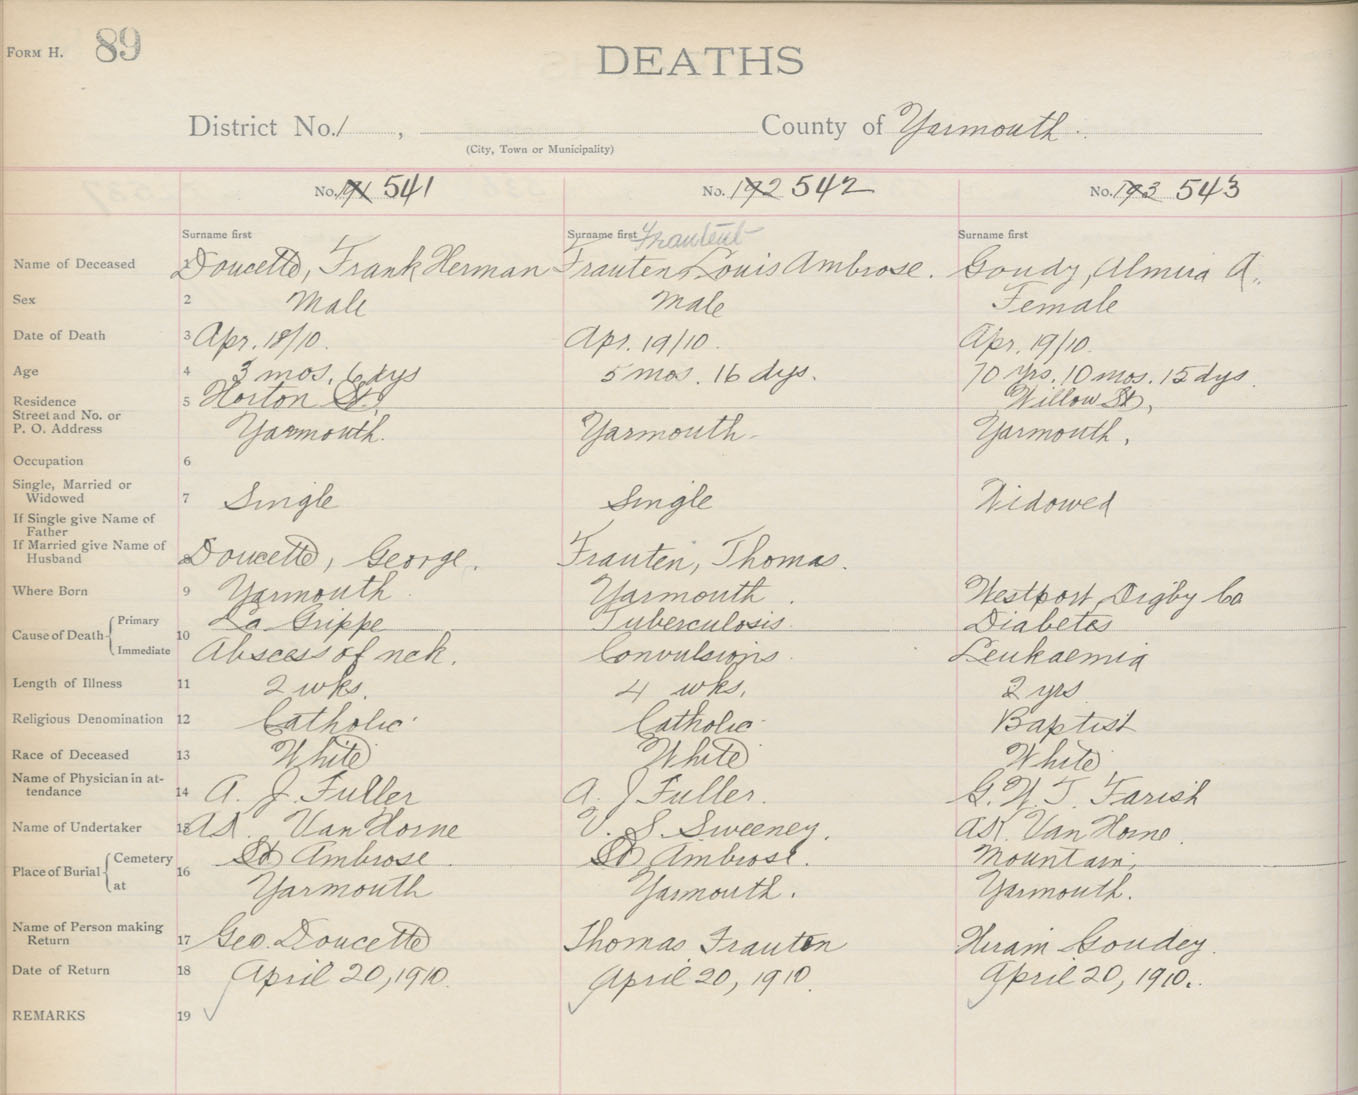 FORM H. 89
DEATHS
District No. 1 , County of Yarmouth.
(City, Town or Municipality)
No. 191 541 No. 192 542 No. 193 543
Surname first Surname first Frautent Surname first
Name of Deceased 1 Doucette, Frank Herman Frauten, Louis Ambrose. Goudy, Almira A.
Sex 2 Male Male Female
Date of Death 3 Apr. 18/10. Apr. 19/10. Apr. 19/10.
Age 4 3 mos. 6 dys 5 mos. 16 dys. 70 yrs. 10 mos. 15 dys.
Residence 5 Horton St., Willow St.,
Street and No. or
P. O. Address Yarmouth. Yarmouth- Yarmouth.
Occupation 6
Single, Married or
Widowed 7 Single Single Widowed
If Single give Name of
Father
If Married give Name of
Husband 8 Doucette, George. Frauten, Thomas.
Where Born 9 Yarmouth. Yarmouth. Westport, Digby Co
Cause of Death Primary La Grippe Tuberculosis. Diabetes
10 Immediate Abscess of nck. Convulsions. Leukaemia
Length of Illness 11 2 wks. 4 wks. 2 yrs
Religious Denomination 12 Catholic Catholic Baptist
Race of Deceased 13 White White White
Name of Physician in at-
tendance 14 A. J. Fuller A. J Fuller. G. W. T. Farish
Name of Undertaker 15 A.K. Van Horne V. S. Sweeney. A.K. Van Horne.
Place of Burial Cemetery St Ambrose. St Ambrose. Mountain,
16 at Yarmouth Yarmouth. Yarmouth.
Name of Person making
Return 17 Geo. Doucette Thomas Frauten Hiram Goudey.
Date of Return 18 April 20, 1910. April 20, 1910. April 20, 1910.
REMARKS 19